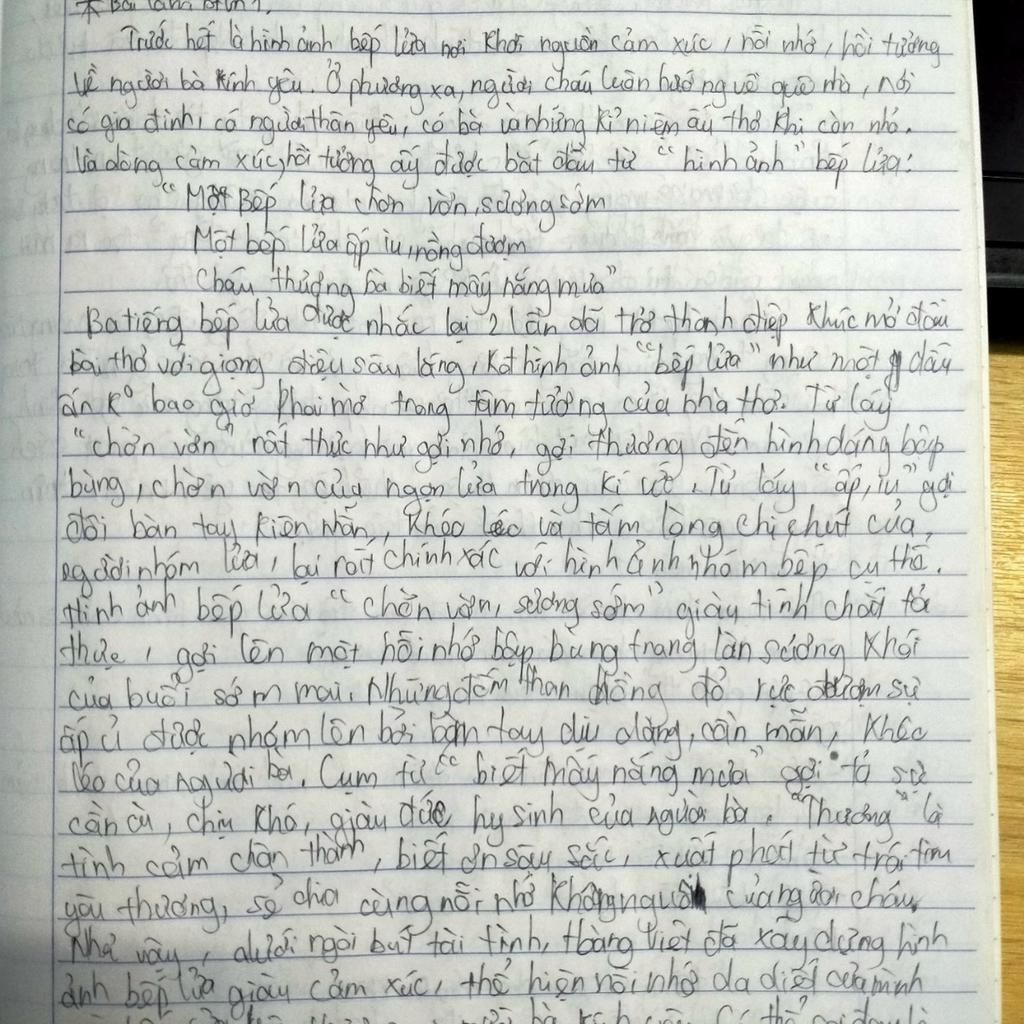 * Bài làm
Trước hết là hình ảnh bếp lửa nơi khơi nguồn cảm xúc, nỗi nhớ, hồi tưởng
về người bà kính yêu. Ở phương xa, người cháu luôn hướng về quê nhà, nơi
có gia đình, có người thân yêu, có bà và những kỉ niệm ấu thơ khi còn nhỏ.
Và dòng cảm xúc, hồi tưởng ấy được bắt đầu từ "hình ảnh" bếp lửa:
"Một Bếp lửa chờn vờn, sương sớm
Một bếp lửa ấp iu, nồng đượm
Cháu thương bà biết mấy nắng mưa"
Ba tiếng bếp lửa được nhắc lại 2 lần đã trở thành điệp khúc mở đầu
bài thơ với giọng điệu sâu lắng, hình ảnh "bếp lửa" như một dấu
ấn k° bao giờ phai mờ trong tâm tưởng của nhà thơ. Từ láy
"chờn vờn" rất thực như gợi nhớ, gợi thương đến hình dáng bập
bùng, chờn vờn của ngọn lửa trong kí ức. Từ láy "ấp, iu" gợi
đôi bàn tay kiên nhẫn, khéo léo và tấm lòng chi chút của,
người nhóm lửa, lại rất chính xác với hình ảnh nhóm bếp cụ thể.
Hình ảnh bếp lửa "chờn vờn, sương sớm" giàu tính chất tả
thực, gợi lên một hồi nhớ bập bùng trang làn sương khói
của buổi sớm mai. Những đốm than hồng đỏ rực đượm sự
ấp ủ được nhóm lên bởi bàn tay dịu dàng, cần mẫn, khéo
léo của người bà. Cụm từ "biết mấy nắng mưa" gợi tả sự
cần cù, chịu khó, giàu đức hy sinh của người bà. "Thương" là
tình cảm chân thành, biết ơn sâu sắc, xuất phát từ trái tim
yêu thương, sẻ chia cùng nỗi nhớ không nguôi của người cháu.
Như vậy, dưới ngòi bút tài tình, Hoàng Việt đã xây dựng hình
ảnh bếp lửa giàu cảm xúc, thể hiện nỗi nhớ da diết của mình